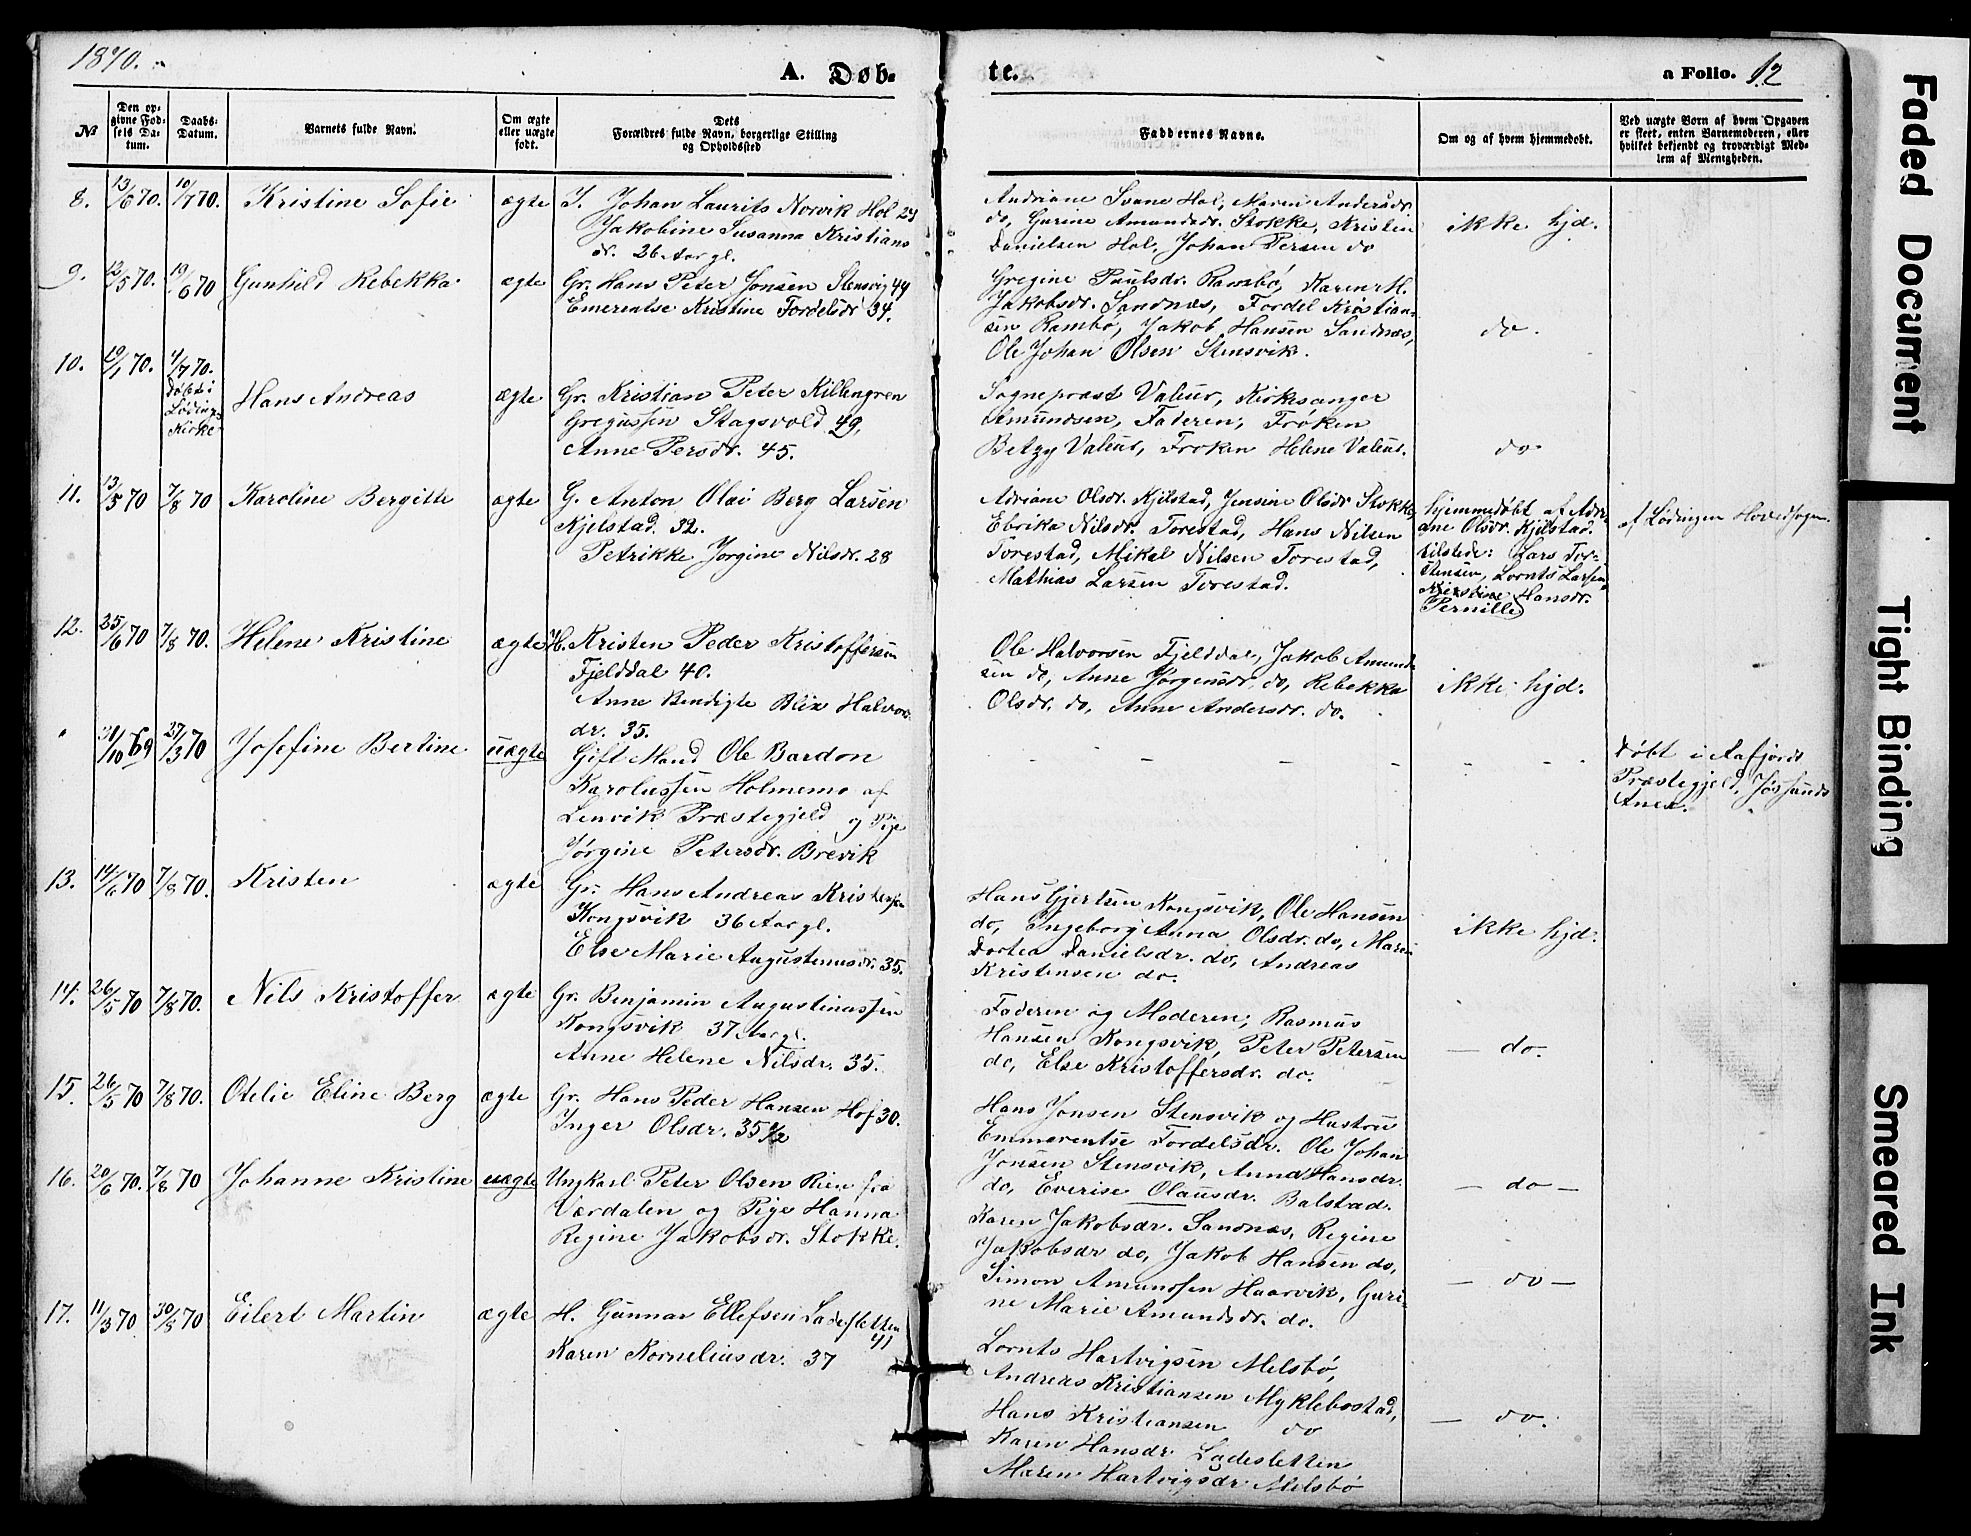 1870.
A. Døb-
№
Den op-
givne Fød-
sels Da-
tum.
Daabs-
Datum.
Barnets fulde Navn.
Om ægte
eller uægte
født.
Dets
Forældres fulde Navn, borgerlige Stilling
og Opholdssted
8. 13/6 70. 10/7 70. Kristine Sofie ægte I. Johan Laurits Norvik Hol 29
Jakobine Susanna Kristians
dr. 26 Aar gl.
9. 12/5 70. 19/6 70 Gunhild Rebekka ægte Gr. Hans Peter Jonsen Stensvig 49
Emerentse Kristine Fordelsdr 34.
10. 19/1 70. 4/7 70.
Døbt i
Lødings
Kirke
Hans Andreas ægte Gr. Kristian Peter Killengren
Gregussen Stagsvold 49,
Anne Persdr. 45.
11. 13/5 70 7/8 70 Karoline Bergitte ægte G. Anton Olai Berg Larsen
Kjelstad. 32.
Petrikke Jørgine Nilsdr. 28
12. 25/6 70 7/8 70. Helene Kristine ægte H. Kristen Peder Kristoffersen
Fjelddal 40.
Anne Bendigte Blix Halvor
dr. 35.
" 31/10 69 27/3 70 Josefine Bertine uægte Gift Mand Ole Bardon
Karolussen Holmemo af
Lenvik Præstegjeld og Pige
Jørgine Petersdr. Brevik
13. 14/6 70 7/8 70. Kristen ægte Gr. Hans Andreas Kristensen
Kongsvik 36 Aar gl.
Else Marie Augustinusdr. 35.
14. 26/5 70 7/8 70. Nils Kristoffer ægte Gr. Benjamin Augustinussen
Kongsvik 37 Aar gl.
Anne Helene Nilsdr. 35.
15. 26/5 70 7/8 70. Otelie Eline Berg ægte Gr. Hans Peder Hansen Hof 30.
Inger Olsdr. 35 1/2
16. 20/6 70. 7/8 70 Johanne Kristine uægte Ungkarl Peter Olsen Rien fra
Værdalen og Pige Hanna
Regine Jakobsdr. Stokke.
17. 11/3 70 30/5 70 Eilert Martin ægte H. Gunnar Ellefsen Ladesletten
41
Karen Korneliusdr. 37
te.
a Folio. 12
Faddernes Navne.
Om og af hvem hjemmedøbt.
Ved uægte Børn af hvem Opgaven
er skeet, enten Barnemoderen, eller
hvilket bekjendt og troværdigt Med-
lem af Menigheden.
Andriane Svane Hol, Maren Andersdr.
do, Gurine Amundsdr. Stokke, Kristen
Danielsen Hol, Johan Persen do
ikke hjd.
Gregine Paulsdr. Rambø, Karen M.
Jakobsdr. Sandnæs, Fordel Kristian-
sen Rambø, Jakob Hansen Sandnæs,
Ole Johan Olsen Stensvik.
do.
Sognepræst Valeur, Kirkesanger
Amundsen, Faderen, Frøken
Betzy Valeur, Frøken Helene Valeur.
do
Adriane Olsdr. Kjelstad, Jensine Olsdr Stokke,
Ebrika Nilsdr. Torestad, Hans Nilsen
Torestad, Mikal Nilsen Torestad,
Mathias Larsen Torestad.
hjemmedøbt af Adri-
ane Olsdr. Kjelstad.
tilstede: Lars Tor-
stensen, Lornts Larsen
Kirstine Hansdr.
Pernille
af Lødingen Hovedsogn.
Ole Halvorsen Fjelddal, Jakob Amund-
sen do, Anne Jørgensdr. do, Rebekka
Olsdr. do, Anne Andersdr. do.
ikke hjd.
- - - - - -
Døbt i Aafjords
Præstegjeld, Jøssunds
Anex.
Hans Gjertsen Kongsvik, Ole Hansen
do, Ingeborg Anna Olsdr. do, Maren
Dortea Danielsdr. do, Andreas
Kristensen do.
ikke hjd.
Faderen og Moderen, Rasmus
Hansen Kongsvik, Peter Petersen
do, Else Kristoffersdr. do.
— do.
Hans Jonsen Stensvik og Hustru
Emmerentse Fordelsdr. Ole Johan
Jonsen Stensvik, Anna Hansdr.
do, Everise Olausdr. Balstad.
— do —
Karen Jakobsdr. Sandnæs, Regine
Jakobsdr do, Jakob Hansen do,
Simon Amundsen Haarvik, Guri-
ne Marie Amundsdr. do.
— do —
Lornts Hartvigsen Melsbø,
Andreas Kristiansen Myklebostad,
Hans Kristiansen do
Karen Hansdr. Ladesletten
Maren Hartvigsdr. Melsbø
— do.
Faded Document
Tight Binding
Smeared Ink